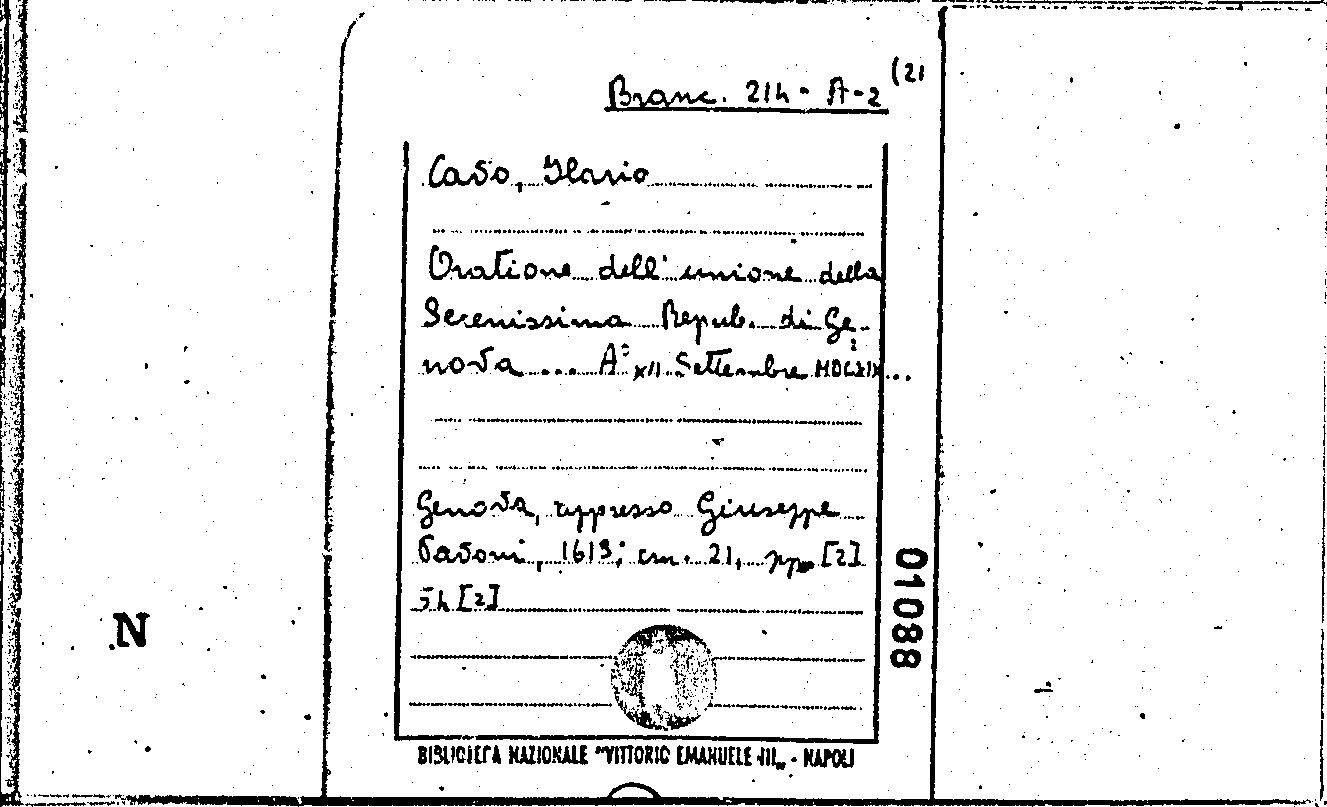 Branc. 214 - A-2 (21
Cavo, Ilario
Oratione dell'unione della
Serenissima Repub. di Ge-
nova ... A' XII Settembre
Genova, appresso Giuseppe
Pavoni, 1619; cm. 21, pp. [2]
54 [2]
01088
N
BIBLIOTECA NAZIONALE "VITTORIO EMANUELE III" - NAPOLI